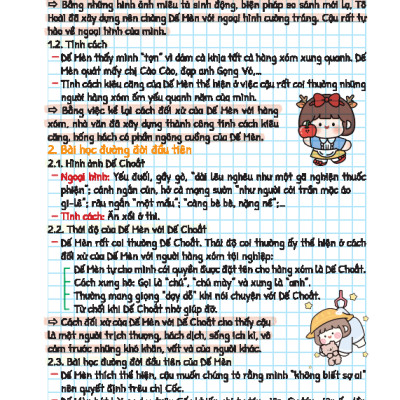 ⇨ Bằng những hình ảnh miêu tả sinh động, biện pháp so sánh mới lạ, Tô
Hoài đã xây dựng nên chàng Dế Mèn với ngoại hình cường tráng. Cậu rất tự
hào về ngoại hình của mình.
1.2. Tính cách
– Dế Mèn thấy mình "tợn" vì dám cà khịa tất cả hàng xóm xung quanh. Dế
Mèn quát mấy chị Cào Cào, đạp anh Gọng Vó,...
– Tính cách kiêu căng của Dế Mèn thể hiện ở việc cậu rất coi thường những
người hàng xóm ốm yếu quanh năm của mình.
⇨ Bằng việc kể lại cách đối xử của Dế Mèn với hàng
xóm, nhà văn đã xây dựng thành công tính cách kiêu
căng, hống hách có phần ngông cuồng của Dế Mèn.
2. Bài học đường đời đầu tiên
2.1. Hình ảnh Dế Choắt
– Ngoại hình: Yếu đuối, gầy gò, "dài lêu nghêu như một gã nghiện thuốc
phiện"; cánh ngắn củn, hở cả mạng sườn "như người cởi trần mặc áo
gi-lê"; râu ngắn "một mẩu"; "càng bè bè, nặng nề";...
– Tính cách: Ăn xổi ở thì.
2.2. Thái độ của Dế Mèn với Dế Choắt
– Dế Mèn rất coi thường Dế Choắt. Thái độ coi thường ấy thể hiện ở cách
đối xử của Dế Mèn với người hàng xóm tội nghiệp:
Dế Mèn tự cho mình cái quyền được đặt tên cho hàng xóm là Dế Choắt.
Cách xưng hô: Gọi là "chú", "chú mày" và xưng là "anh".
Thường mang giọng "dạy dỗ" khi nói chuyện với Dế Choắt.
Từ chối khi Dế Choắt nhờ giúp đỡ.
⇨ Cách đối xử của Dế Mèn với Dế Choắt cho thấy cậu
là một người trịch thượng, hách dịch, sống ích kỉ, vô
cảm trước những khó khăn, vất vả của người khác.
2.3. Bài học đường đời đầu tiên của Dế Mèn
– Dế Mèn thích thể hiện, cậu muốn chứng tỏ rằng mình "không biết sợ ai"
nên quyết định trêu chị Cốc.